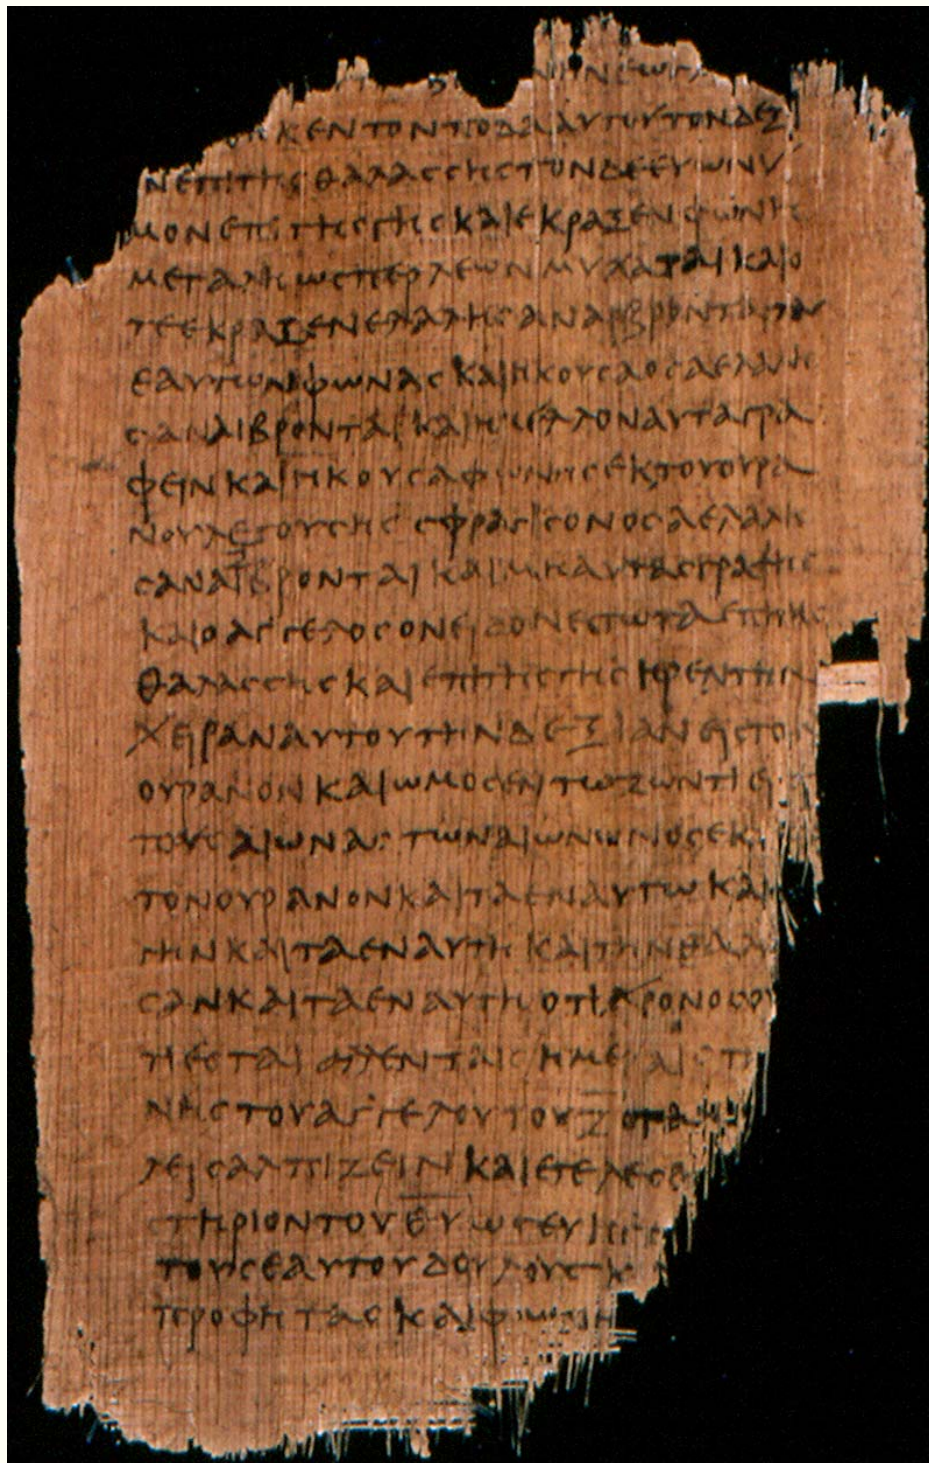 ΚΕΝΤΟΝΠΟΔΑΑΥΤΟΥΤΟΝΔΕΞΙ
ΝΕΠΙΤΗϹΘΑΛΑϹϹΗϹΤΟΝΔΕΕΥΩΝΥ
ΜΟΝΕΠΙΤΗϹΓΗϹΚΑΙΕΚΡΑΞΕΝΦΩΝΗ
ΜΕΓΑΛΗΩϹΠΕΡΛΕΩΝΜΥΚΑΤΑΙΚΑΙΟ
ΤΕΕΚΡΑΞΕΝΕΛΑΛΗϹΑΝΑΙ ΒΡΟΝΤΑΙ
ΕΑΥΤΩΝΦΩΝΑϹΚΑΙΗΚΟΥϹΑΟϹΑΕΛΑΛΗ
ϹΑΝΑΙΒΡΟΝΤΑΙΚΑΙΗΜΕΛΛΟΝΑΥΤΑΓΡΑ
ΦΕΙΝΚΑΙΗΚΟΥϹΑΦΩΝΗϹΕΚΤΟΥΟΥΡΑ
ΝΟΥΛΕΓΟΥϹΗϹϹΦΡΑΓΙϹΟΝΟϹΑΕΛΑΛΗ
ϹΑΝΑΙΖ̅ΒΡΟΝΤΑΙΚΑΙΜΗΑΥΤΑϹΓΡΑΨΗϹ
ΚΑΙΟΑΓΓΕΛΟϹΟΝΕΙΔΟΝΕϹΤΩΤΑΕΠΙΤΗϹ
ΘΑΛΑϹϹΗϹΚΑΙΕΠΙΤΗϹΓΗϹΗΡΕΝΤΗΝ
ΧΕΙΡΑΝΑΥΤΟΥΤΗΝΔΕΞΙΑΝΕΙϹΤΟΝ
ΟΥΡΑΝΟΝΚΑΙΩΜΟϹΕΝΤΩΖΩΝΤΙΕΙϹ
ΤΟΥϹΑΙΩΝΑϹΤΩΝΑΙΩΝΩΝΟϹΕΚ
ΤΟΝΟΥΡΑΝΟΝΚΑΙΤΑΕΝΑΥΤΩΚΑΙ
ΓΗΝΚΑΙΤΑΕΝΑΥΤΗΚΑΙΤΗΝΘΑΛΑ
ϹΑΝΚΑΙΤΑΕΝΑΥΤΗΟΤΙΧΡΟΝΟϹΟΥ
ΤΙΕϹΤΑΙΑΛΛΕΝΤΑΙϹΗΜΕΡΑΙϹΤ
ΝΗϹΤΟΥΑΓΓΕΛΟΥΤΟΥΖ̅ΟΤΑΝ
ΛΕΙϹΑΛΠΙΖΕΙΝΚΑΙΕΤΕΛΕϹΘ
ϹΤΗΡΙΟΝΤΟΥΘ̅Υ̅ΩϹΕΥΗΓΓΕ
ΤΟΥϹΕΑΥΤΟΥΔΟΥΛΟΥϹΚ
ΠΡΟΦΗΤΑϹΚΑΙΦΩΝΗΝ